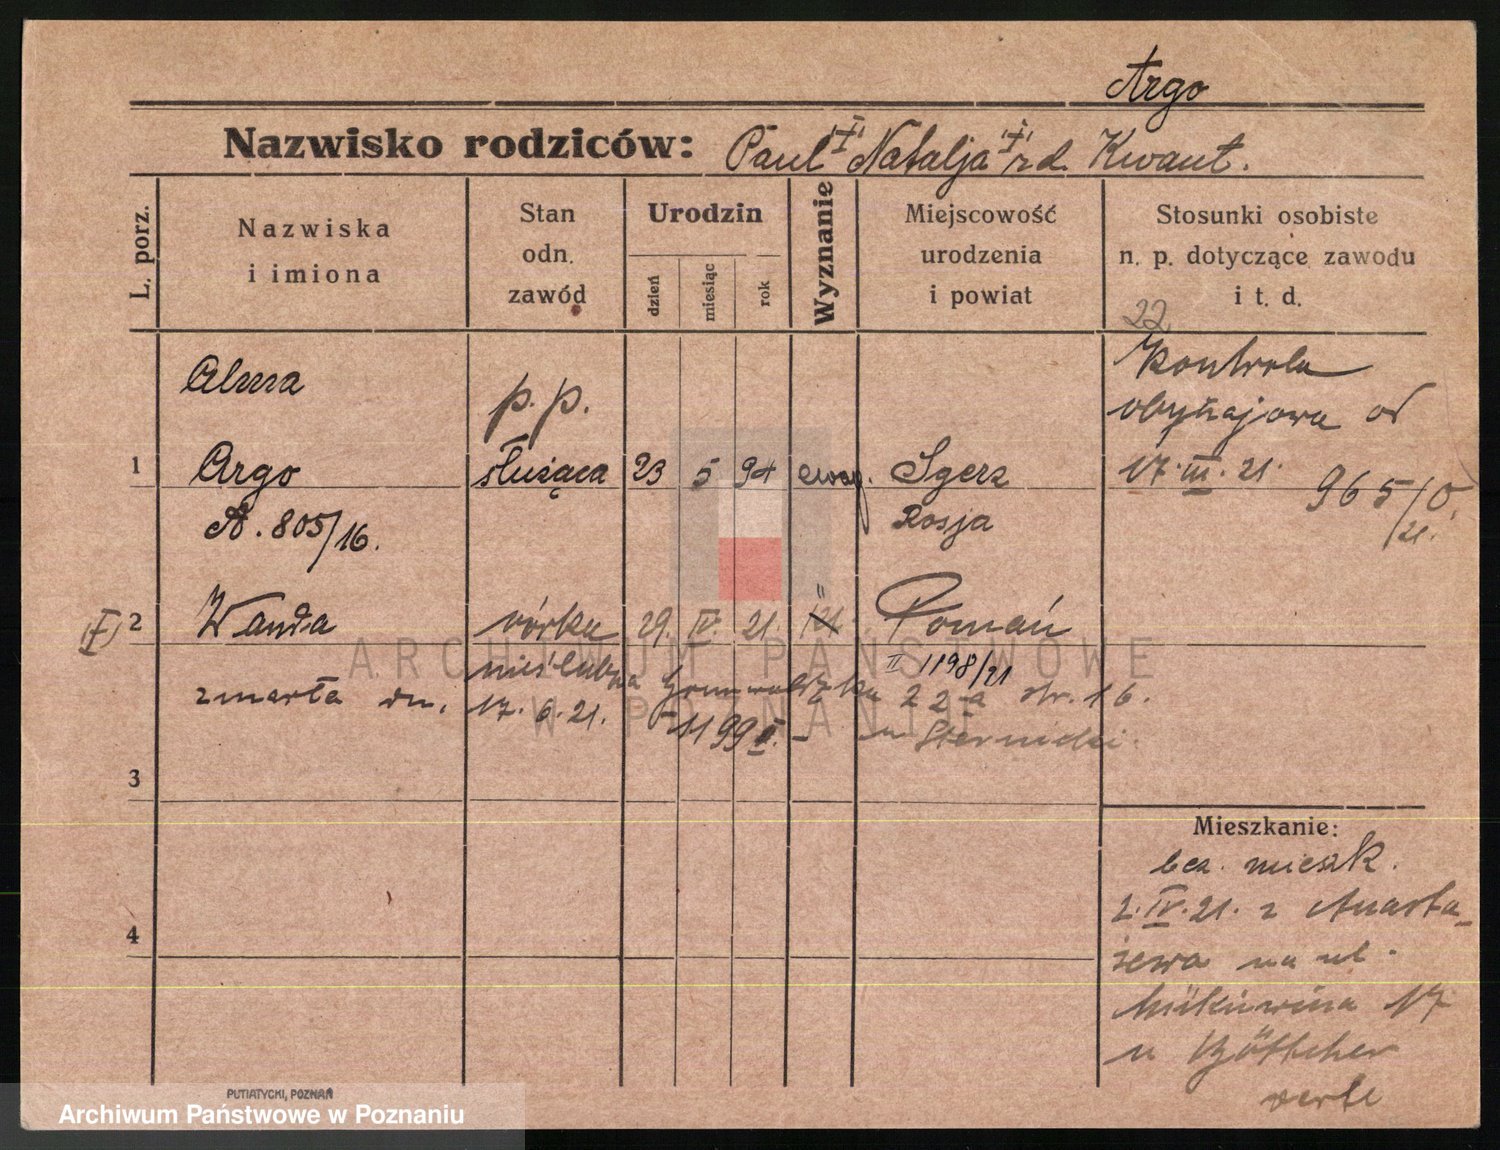 Argo
Nazwisko rodziców: Paul Natalja rd. Kwant.
L. porz.
Nazwiska
i imiona
Stan
odn.
zawód
Urodzin
dzień
miesiąc
rok
Wyznanie
Miejscowość
urodzenia
i powiat
Stosunki osobiste
n. p. dotyczące zawodu
i t. d.
22
Alma
p. p.
Kontrola
obyczajowa od
17. III. 21.
965/O.
/21.
1 Argo służąca 23 5 94 ewag. Zgerz
A. 805/16. Rosja
2 Wanda córka 29. IV. 21. Poznań
nieślubna
II 1198/21
zmarła dn. 17. 6. 21. Grunwaldzka 22a str. 16.
1199
u
3
4
Mieszkanie:
bez mieszk.
2. IV. 21. z
na ul.
17
u Böttcher
verte
PUTIATYCKI, POZNAŃ
ARCHIWUM PAŃSTWOWE
W POZNANIU
Archiwum Państwowe w Poznaniu